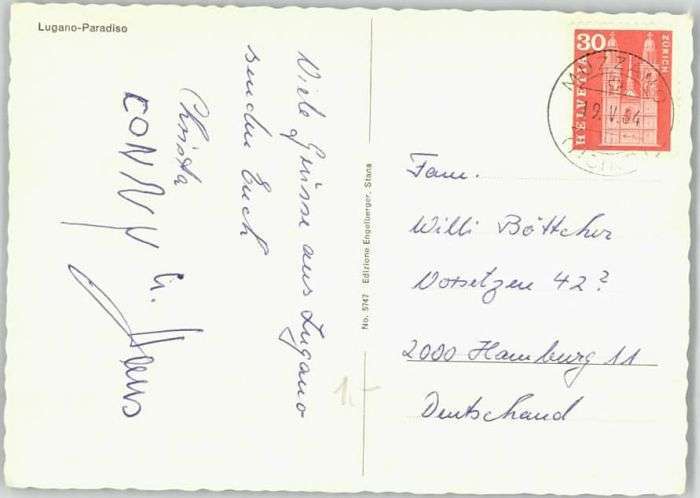 Lugano-Paradiso
Viele Grüsse aus Lugano
senden Euch
Christa
CONNY u.
Hans
No. 5747 Edizione Engelberger, Stans
30
HELVETIA
ZÜRICH
MUZZANO
19.V.84
Fam.
Willi Böttcher
Vorsetzen 42?
2000 Hamburg 11
Deutschand
1.-